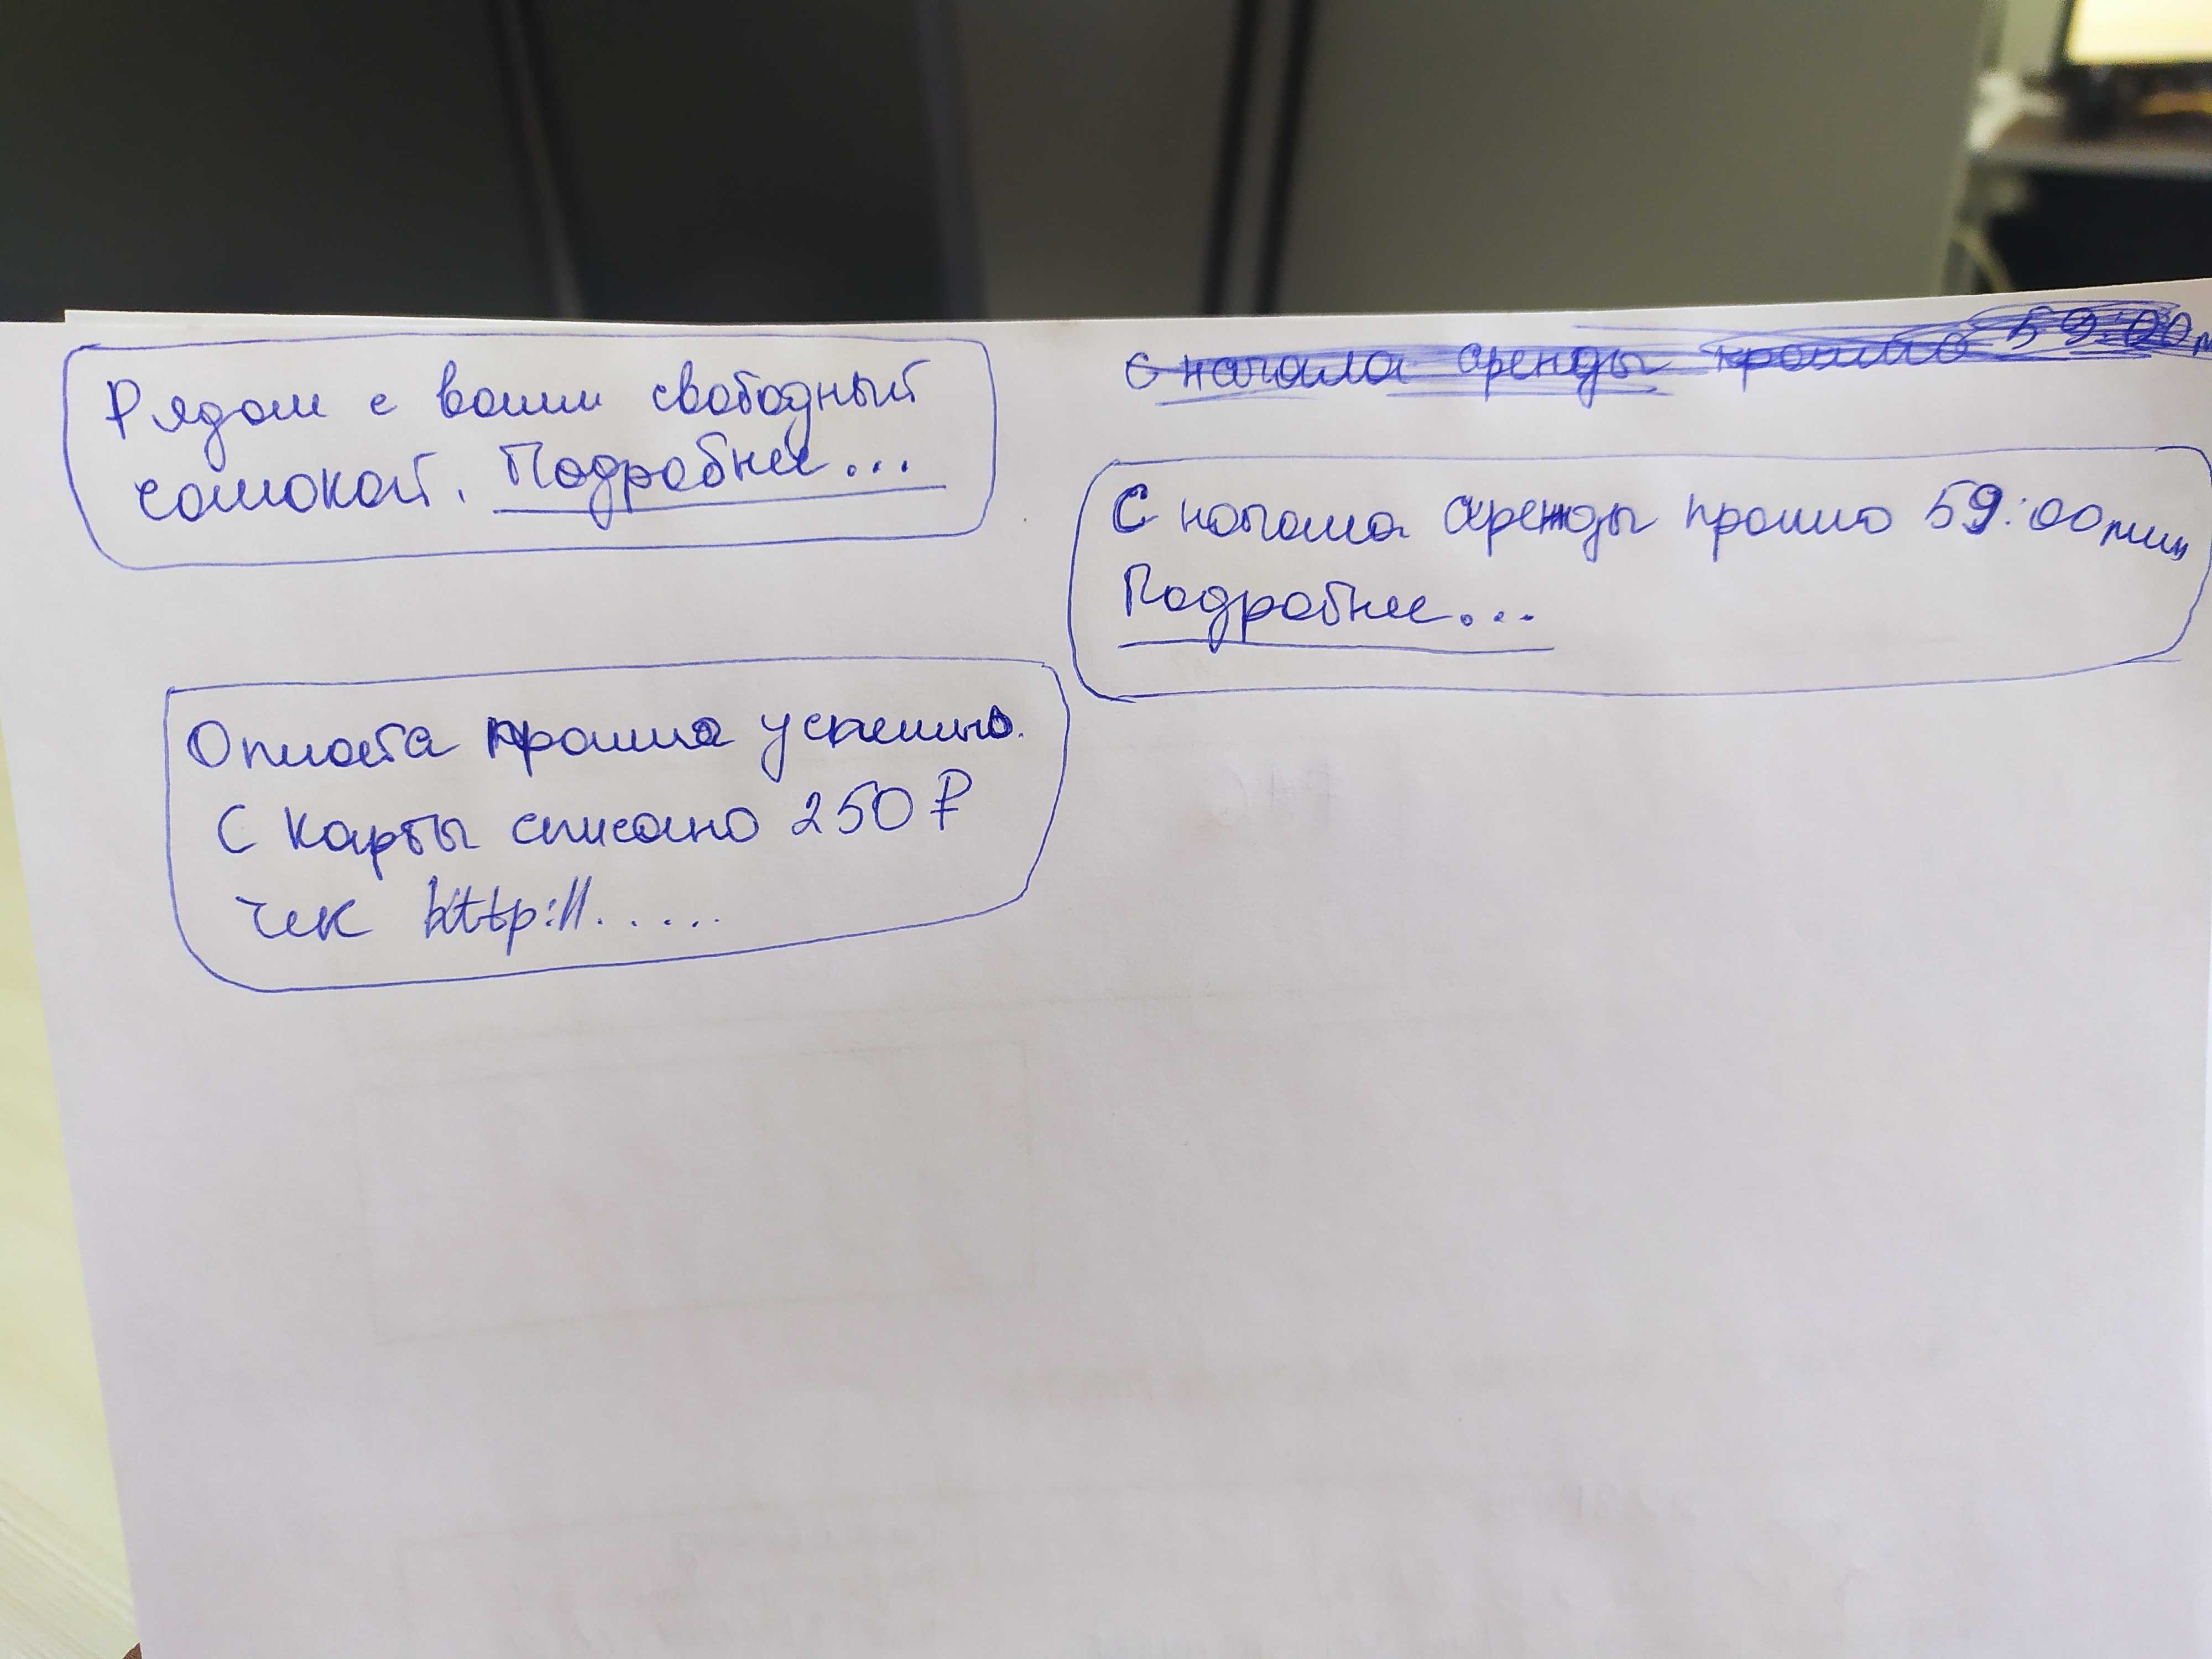 Рядом с вами свободный
самокат. Подробнее...
С начала аренды прошло 59:00 м
С начала аренды прошло 59:00 мин
Подробнее...
Оплата прошла успешно.
С карты списано 250 ₽
Чек http://.....